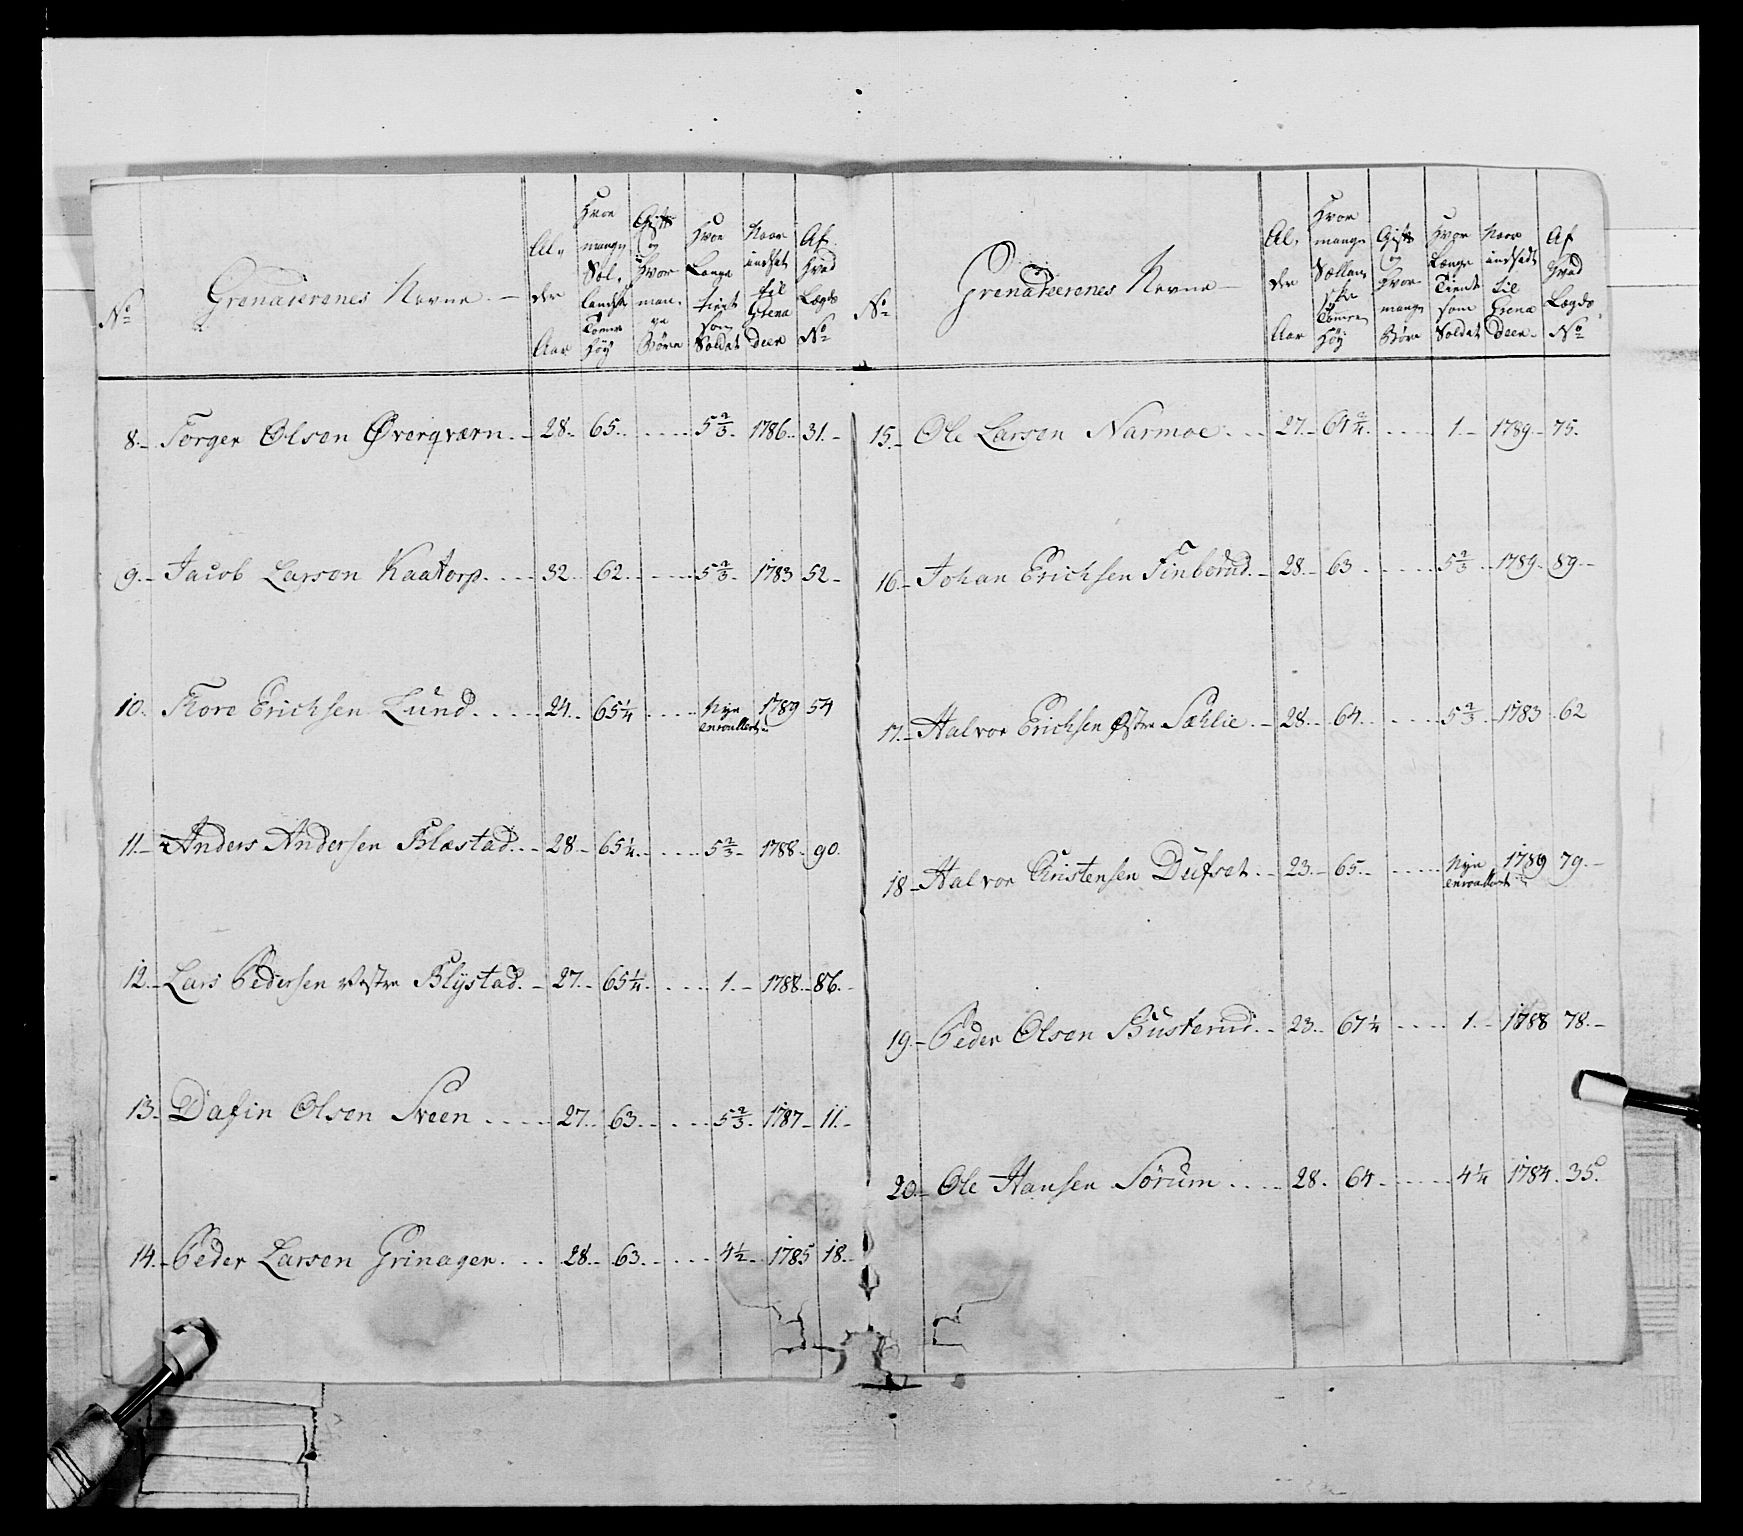 No
Grenadeerenes Navne.
Al,, der Aar
Hvor mange Sel, landske Tomme Høy
Gift og Hvor man, ge Børn
Hvor Længe tient som Soldat
Naar indsat til Grena deer
Af Hvad Lægds No
8. Torger Olsen Øverqværn. 28. 65. 5 2/3. 1786. 31.
9. Jacob Larsen Kaatorp. 32. 62. 5 2/3. 1783 52.
10. Thore Erichsen Lund. 24. 65 1/4 Nye 1789 54
enroullert
11. Anders Andersen Blæstad. 28. 65 1/4. 5 2/3. 1788. 90.
12. Lars Pedersen Vestre Blystad. 27. 65 1/4. 1. 1788. 86.
13. Dafin Olsen Sveen 27. 63. 5 2/3. 1787. 11.
14. Peder Larsen Grinager. 28. 63. 4 1/2. 1785 18.
No
Grenadeerenes Navne
Al, der Aar
Hvor mange Sællan, ske Tomme Høÿ
Gift og Hvor mange Børn
Hvor Længe Tient som Soldat
Naar indsadt til Grena deer.
Af Hvad Lægds No
15. Ole Larsen Narmoe. 27. 64 2/4. 1. 1789. 75.
16. Johan Erichsen Finborud. 28. 63 5 2/3. 1789. 89.
17. Halvor Erichsen Østre Sæhlie. 28. 64. 5 2/3. 1783. 62
18. Halvor Christensen Dufset. 23. 65. Nye 1789 79.
enroullert
19. Peder Olsen Busterud. 23. 67 1/4 1. 1788 78.
20. Ole Hansen Sörum. 28. 64. 4 1/4 1784. 35.